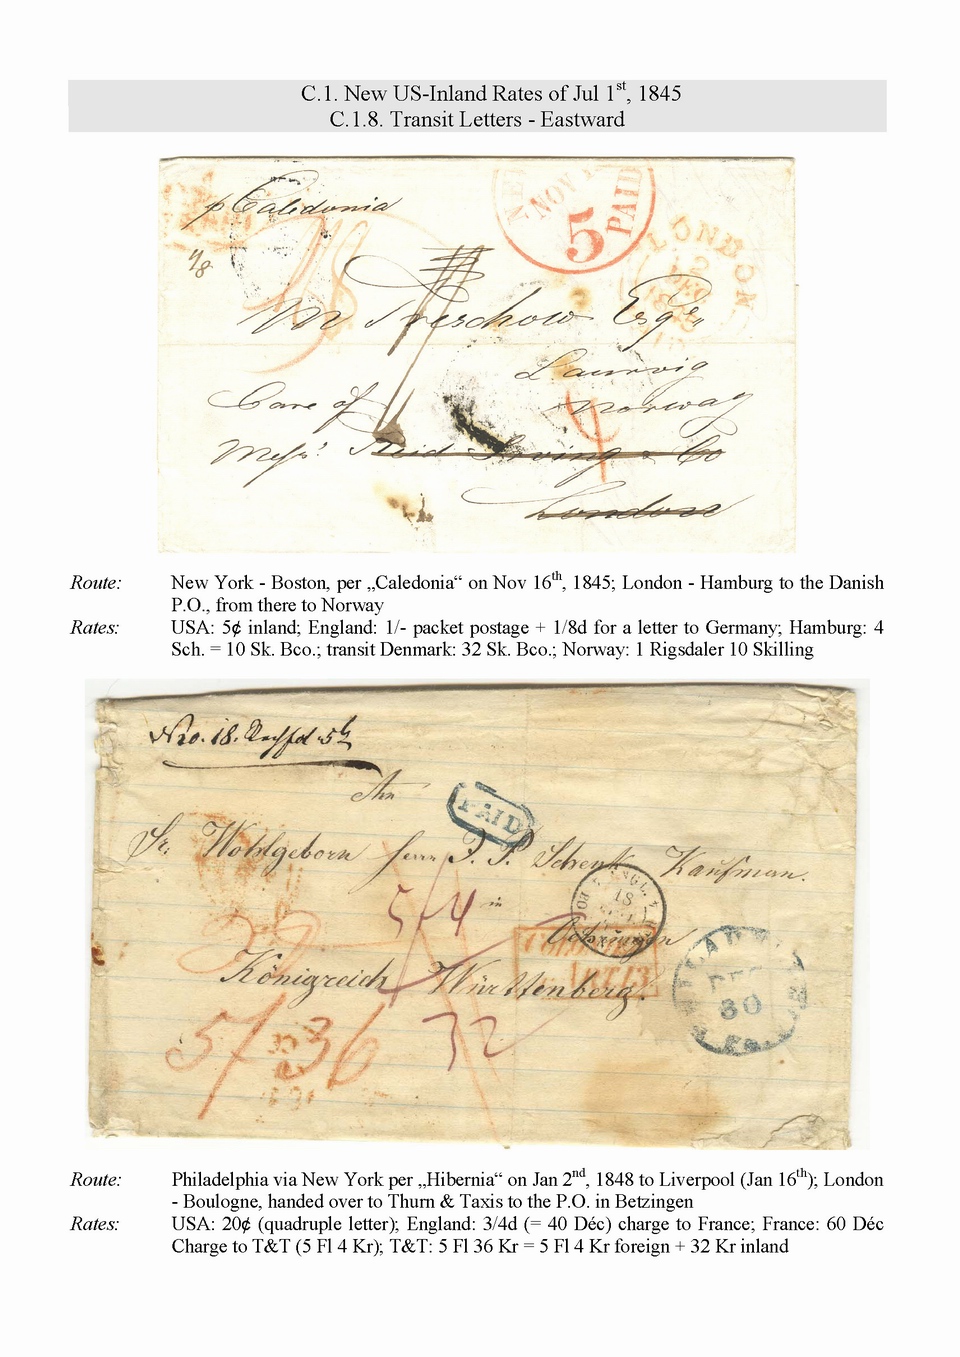 C.1. New US-Inland Rates of Jul 1st, 1845
C.1.8. Transit Letters - Eastward
p Caledonia
NOV
5
PAID
LONDON
1/8
Treschow Esqre
Laurvig
Norway
4
Care of
Messrs Reid Irving & Co
London
Route: New York - Boston, per „Caledonia“ on Nov 16th, 1845; London - Hamburg to the Danish
P.O., from there to Norway
Rates: USA: 5¢ inland; England: 1/- packet postage + 1/8d for a letter to Germany; Hamburg: 4
Sch. = 10 Sk. Bco.; transit Denmark: 32 Sk. Bco.; Norway: 1 Rigsdaler 10 Skilling
Nro. 18.
An
PAID
Sr. Wohlgeborn Herrn J. P. Schenk Kaufman.
ANGL.
18
5/4 in
Oehringen
Königreich Württenberg.
DEC
30
Pa
5/36 32
Route: Philadelphia via New York per „Hibernia“ on Jan 2nd, 1848 to Liverpool (Jan 16th); London
- Boulogne, handed over to Thurn & Taxis to the P.O. in Betzingen
Rates: USA: 20¢ (quadruple letter); England: 3/4d (= 40 Déc) charge to France; France: 60 Déc
Charge to T&T (5 Fl 4 Kr); T&T: 5 Fl 36 Kr = 5 Fl 4 Kr foreign + 32 Kr inland